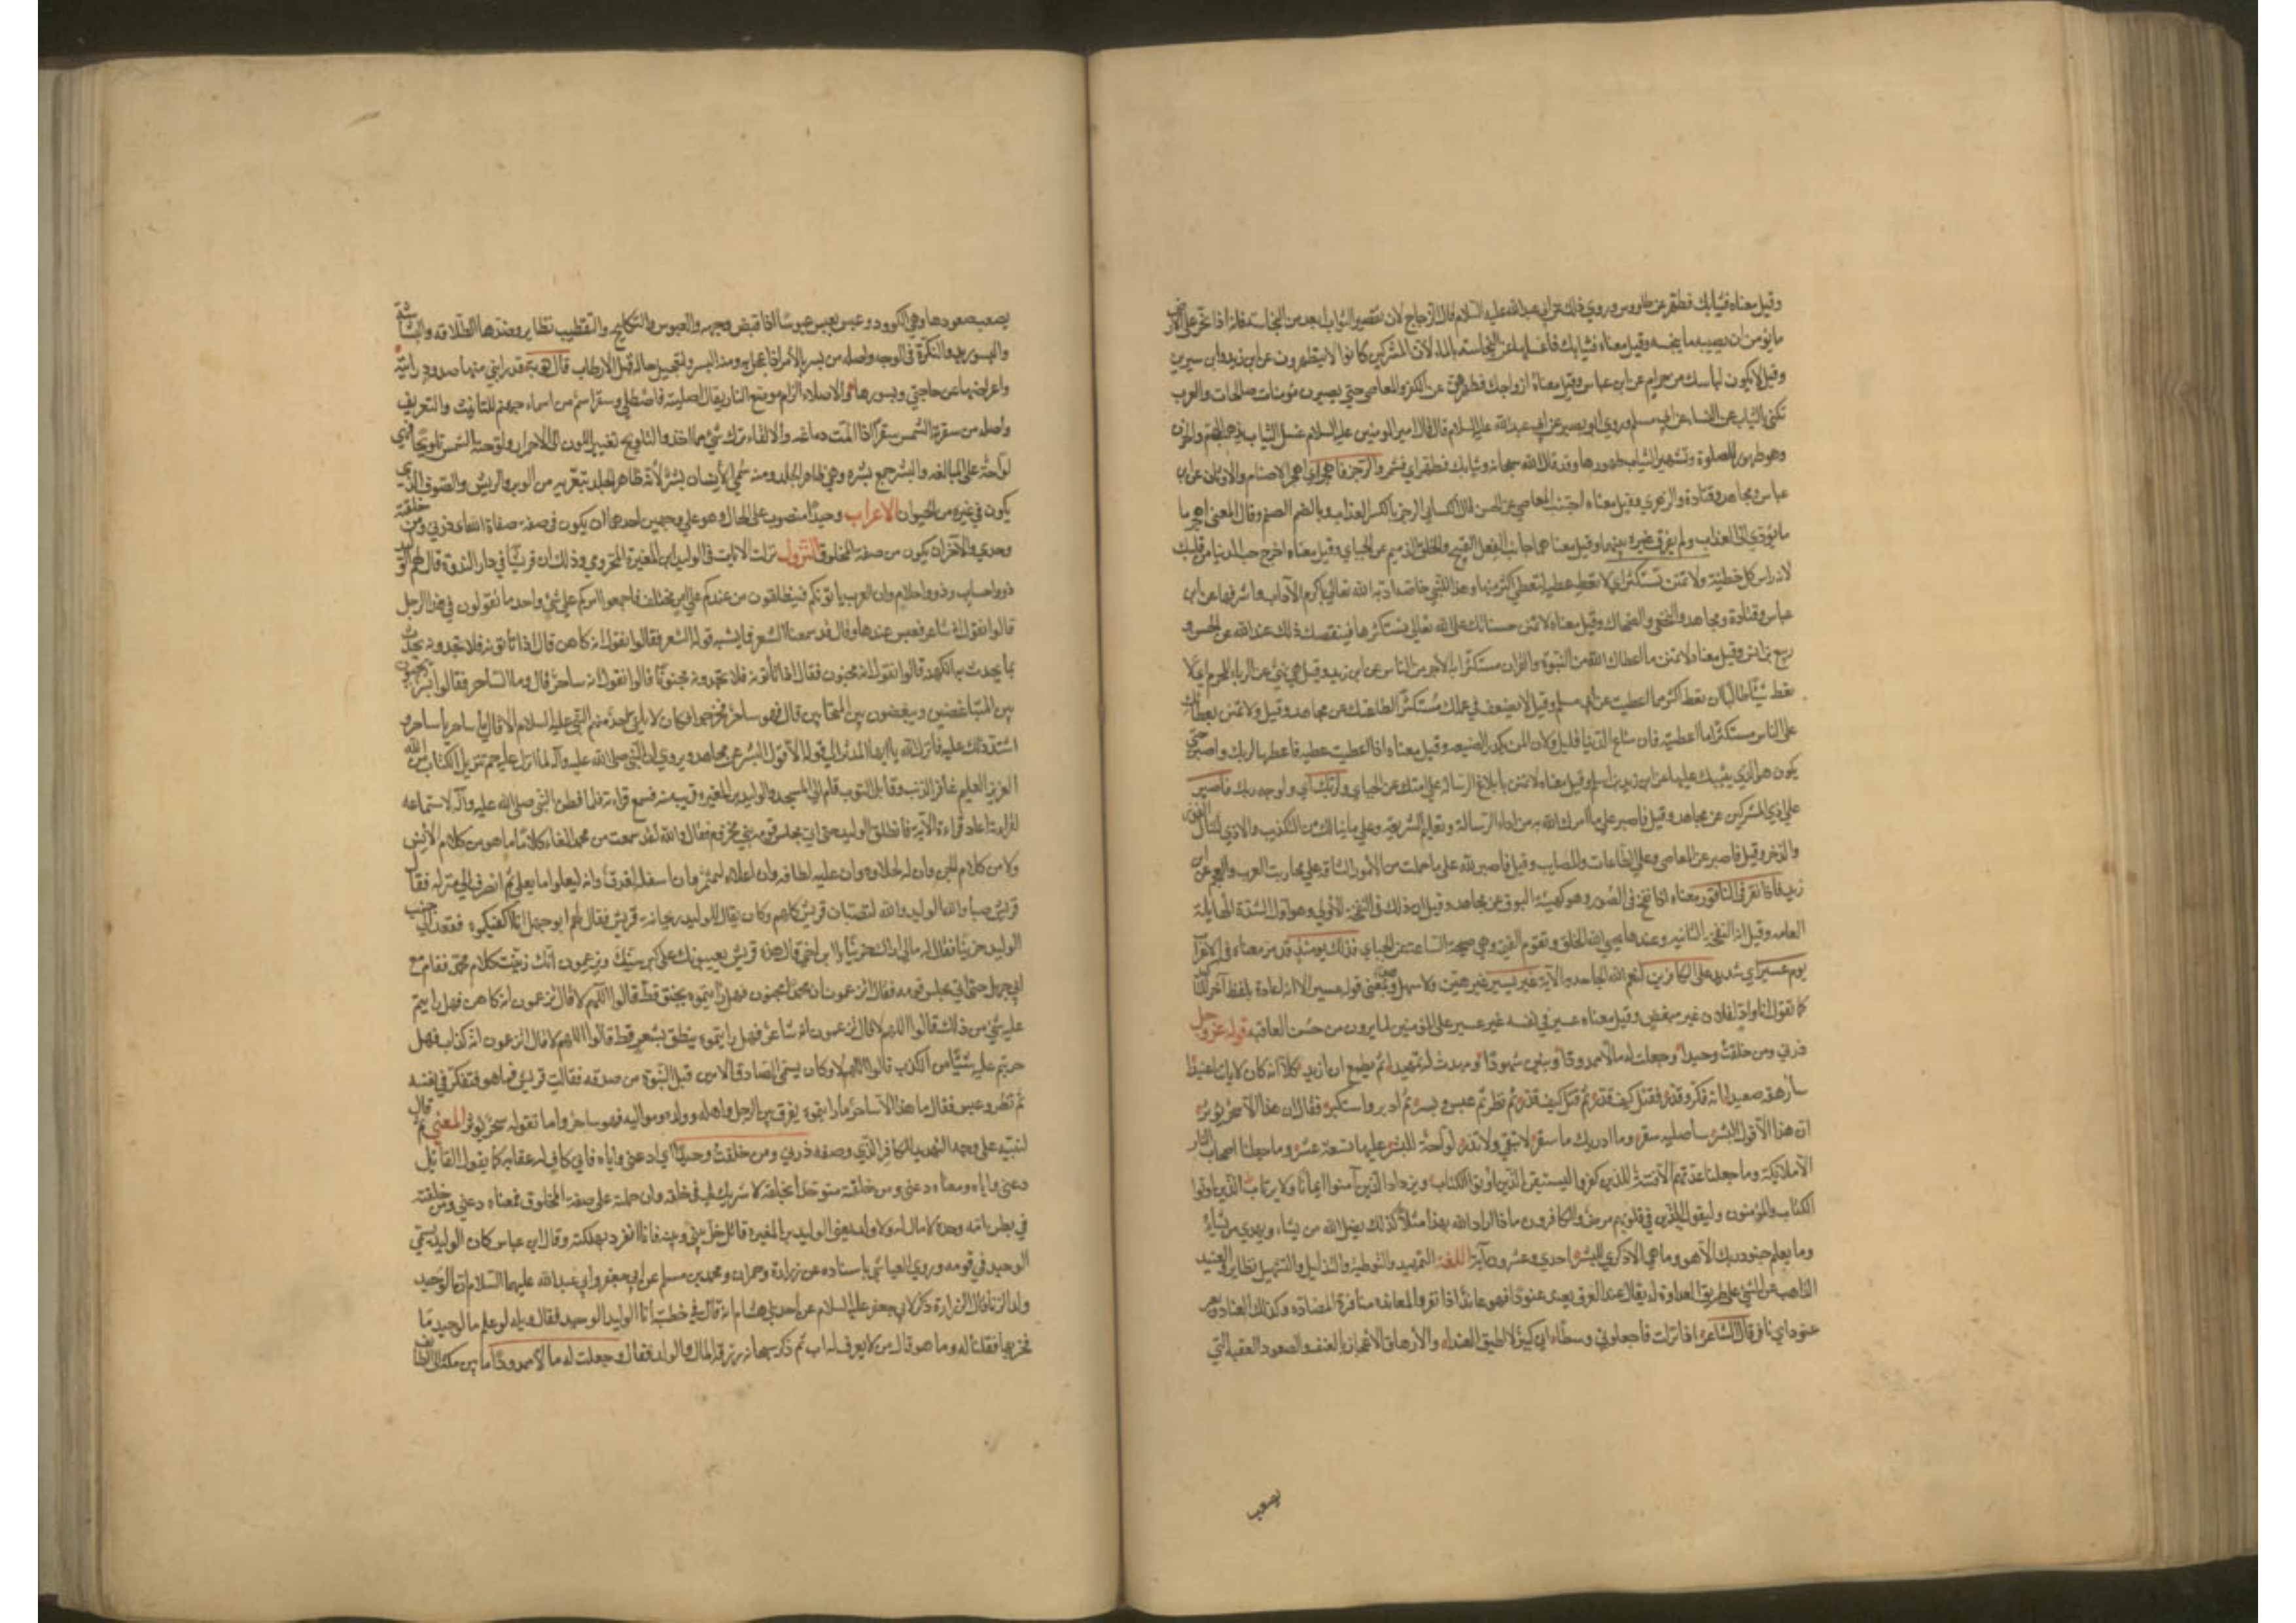 وقيل معناه وثيابك فطهر عن طاووس وروي ذلك عن ابي عبد الله عليه السلام قال الزجاج لان تقصير الثوب ابعد من النجاسة فانه اذا انجر على الارض
ما يؤمن ان يصيبه ما ينجسه وقيل معناه وثيابك فاغسلها عن النجاسة بالماء لان المشركين كانوا لا يتطهرون عن ابن زيد وابن سيرين
وقيل لا يكون لباسك من حرام عن ابن عباس وقيل معناه ازواجك فطهرهن عن الكفر والمعاصي حتى يصيرن مؤمنات صالحات والعرب
تكني بالثياب عن النساء عن ابي مسلم وروي ابو بصير عن ابي عبد الله عليه السلام قال قال امير المؤمنين عليه السلام غسل الثياب يذهب الهم والحزن
وهو طهور للصلوة وتشمير الثياب طهور لها وقد قال الله سبحانه وثيابك فطهر اي فشمر والرجز فاهجر اي اهجر الاصنام والاوثان عن ابن
عباس ومجاهد وقتادة والزهري وقيل معناه اجتنب المعاصي عن الحسن قال الكسائي الرجز بالكسر العذاب وبالضم الصنم وقال المعنى اهجر ما
يؤدي الى العذاب ولم يفرق غيره بينهما وقيل معناه جانب الفعل القبيح والخلق الذميم عن الجبائي وقيل معناه اخرج حب الدنيا من قلبك
لانه راس كل خطيئة ولا تمنن تستكثر اي لا تعط عطية لتعطى اكثر منها وهذا للنبي خاصة ادبه الله تعالى باكرم الآداب واشرفها عن ابن
عباس وقتادة ومجاهد والنخعي والضحاك وقيل معناه لا تمنن حسناتك على الله تعالى مستكثرا لها فينقصك ذلك عند الله عن الحسن و
ربيع بن انس وقيل معناه لا تمنن ما اعطاك الله من النبوة والقران مستكثرا به الاجر من الناس عن ابن زيد وقيل هي نهي عن الربا المحرم اي لا
تعط شيئا طالبا ان تعطى اكثر مما اعطيت عن ابي مسلم وقيل لا تضعف في عملك مستكثرا لطاعتك عن مجاهد وقيل ولا تمنن بعطائك
على الناس مستكثرا ما اعطيته فان متاع الدنيا قليل ولان المن يكدر الصنيعة وقيل معناه اذا اعطيت عطية فاعطها لربك واصبر حتى
يكون هو الذي يثيبك عليها عن ابن زيد بن اسلم وقيل معناه لا تمنن بابلاغ الرسالة على امتك عن الجبائي ولربك اي ولوجه ربك فاصبر
على اذى المشركين عن مجاهد وقيل فاصبر على ما امرك الله به من اداء الرسالة وتعليم الشريعة وعلى ما ينالك من التكذيب والاذى لتنال الفوز
والذخر وقيل فاصبر عن المعاصي وعلى الطاعات والمصايب وقيل فاصبر لله على ما حملت من الامور الشاقة على محاربة العرب والعجم عن ابن
زيد فاذا نقر في الناقور معناه اذا نفخ في الصور وهو كهيئة البوق عن مجاهد وقيل ان ذلك في النفخة الاولى وهو اول الشدة الهايلة
العامة وقيل انه النفخة الثانية وعندها يحيي الله الخلق وتقوم القيمة وهي صيحة الساعة عن الجبائي فذلك يومئذ قد مر معناه في الاعراب
يوم عسير اي شديد على الكافرين لنعم الله الجاحدين لآياته غير يسير غير هين ولا سهل وهو بمعنى قوله عسير الا انه اعاده بلفظ آخر للتاكيد
كما تقول انا واد لفلان غير مبغض وقيل معناه عسير في نفسه غير عسير على المؤمنين لما يرون من حسن العاقبة قوله عز وجل
ذرني ومن خلقت وحيدا وجعلت له مالا ممدودا وبنين شهودا ومهدت له تمهيدا ثم يطمع ان ازيد كلا انه كان لآياتنا عنيدا
سارهقه صعودا انه فكر وقدر فقتل كيف قدر ثم قتل كيف قدر ثم نظر ثم عبس وبسر ثم ادبر واستكبر فقال ان هذا الا سحر يؤثر
ان هذا الا قول البشر ساصليه سقر وما ادريك ما سقر لا تبقي ولا تذر لواحة للبشر عليها تسعة عشر وما جعلنا اصحاب النار
الا ملائكة وما جعلنا عدتهم الا فتنة للذين كفروا ليستيقن الذين اوتوا الكتاب ويزداد الذين آمنوا ايمانا ولا يرتاب الذين اوتوا
الكتاب والمؤمنون وليقول الذين في قلوبهم مرض والكافرون ماذا اراد الله بهذا مثلا كذلك يضل الله من يشاء ويهدي من يشاء
وما يعلم جنود ربك الا هو وما هي الا ذكرى للبشر احدي وعشرون آية اللغة التمهيد والتوطئة والتذليل والتسهيل نظاير العنيد
الذاهب عن الشي على طريق العداوة له يقال عند العرق يعند عنودا فهو عاند اذا نفر والمعاندة منافرة المضادة وكذلك العناد وبعير
عنود اي نافر قال الشاعر اذا نزلت فاجعلوني وسطا اني كبير لا اطيق العندا والارهاق الاعجال بالعنف والصعود العقبة التي
يصعب
يصعب صعودها وهي الكؤود وعبس يعبس عبوسا اذا قبض وجهه والعبوس والتكليح والتقطيب نظاير وضدها الطلاقة والبشاشة
والبسور بدو التكره في الوجه واصله من بسر بالامر اذا عجل به ومنه البسر لتعجيل حاله قبل الارطاب قال توبة قد رابني منها صدود رايته
واعراضها عن حاجتي وبسورها والاصلاء الزام موضع النار يقال اصليته فاصطلى وسقر اسم من اسماء جهنم للتانيث والتعريف
واصله من سقرته الشمس سقرا اذا آلمت دماغه والابقاء ترك شيء مما اخذ والتلويح تغيير اللون الى الاحمرار ولوحته الشمس تلويحا فهي
لواحة على المبالغة والبشر جمع بشرة وهي ظاهر الجلد ومنه سمي الانسان بشرا لانه ظاهر الجلد بتعريه من الوبر والريش والصوف الذي
يكون في غيره من الحيوان الاعراب وحيدا منصوب على الحال وهو على وجهين احدهما ان يكون في صفة الله اي ذرني ومن خلقته
وحدي والآخر ان يكون من صفة المخلوق النزول نزلت الآيات في الوليد ابن المغيرة المخزومي وذلك ان قريشا في دار الندوة قال لهم الوليد
ذوو احساب وذوو احلام وان العرب يأتونكم فينطلقون من عندكم على امر مختلف فاجمعوا امركم على شيء واحد ما تقولون في هذا الرجل
قالوا نقول انه شاعر فعبس عندها وقال قد سمعنا الشعر فما يشبه قوله الشعر فقالوا نقول انه كاهن قال اذا تاتونه فلا تجدونه يحدث
بما يحدث به الكهنة قالوا نقول انه مجنون فقال اذا تاتونه فلا تجدونه مجنونا قالوا نقول انه ساحر قال وما الساحر فقالوا بشر يحببون
بين المتباغضين ويبغضون بين المتحابين قال فهو ساحر فخرجوا فكان لا يلقى احد منهم النبي عليه السلام الا قال يا ساحر يا ساحر و
اشتد ذلك عليه فانزل الله يا ايها المدثر الى قوله الا قول البشر عن مجاهد ويروي ان النبي صلى الله عليه وآله لما انزل عليه حم تنزيل الكتاب من الله
العزيز العليم غافر الذنب وقابل التوب قام الى المسجد والوليد بن المغيرة قريب منه يسمع قراءته فلما فطن النبي صلى الله عليه وآله لاستماعه
لقراءته اعاد قراءة الآية فانطلق الوليد حتى اتى مجلس قومه بني مخزوم فقال والله لقد سمعت من محمد آنفا كلاما ما هو من كلام الانس
ولا من كلام الجن وان له لحلاوة وان عليه لطلاوة وان اعلاه لمثمر وان اسفله لمغدق وانه ليعلو وما يعلى ثم انصرف الى منزله فقال
قريش صبا والله الوليد والله لتصبان قريش كلهم وكان يقال للوليد ريحانة قريش فقال لهم ابو جهل انا اكفيكموه فقعد الى جنب
الوليد حزينا فقال له مالي اراك حزينا يا ابن اخي قال هذه قريش يعيبونك على كبر سنك ويزعمون انك زينت كلام محمد فقام مع
ابي جهل حتى اتى مجلس قومه فقال اتزعمون ان محمدا مجنون فهل رايتموه يخنق قط فقالوا اللهم لا قال اتزعمون انه كاهن فهل رايتم
عليه شيئا من ذلك قالوا اللهم لا قال اتزعمون انه شاعر فهل رايتموه ينطق بشعر قط قالوا اللهم لا قال اتزعمون انه كذاب فهل
جربتم عليه شيئا من الكذب قالوا اللهم لا وكان يسمى الصادق الامين قبل النبوة من صدقه فقالت قريش فما هو فتفكر في نفسه
ثم نظر وعبس فقال ما هذا الا ساحر ما رايتموه يفرق بين الرجل واهله وولده ومواليه فهو ساحر وما تقوله سحر يؤثر المعنى ثم قال
لنبيه على وجه التهديد للكافر الذي وصفه ذرني ومن خلقت وحيدا اي دعني واياه فاني كاف له عقابه كما يقول القائل
دعني واياه ومعناه دعني ومن خلقته متوحدا بخلقه لا شريك لي في خلقه وان حملته على صفة المخلوق فمعناه دعني ومن خلقته
في بطن امه وحده لا مال له ولا ولد يعني الوليد بن المغيرة قال مقاتل خل بيني وبينه فانا انفرد بهلكته وقال ابن عباس كان الوليد يسمى
الوحيد في قومه وروي العياشي باسناده عن زرارة وحمران ومحمد بن مسلم عن ابي جعفر وابي عبد الله عليهما السلام ان الوحيد
ولد الزنا قال زرارة ذكر لابي جعفر عليه السلام عن احد بني هشام انه قال في خطبته انا الوليد الوحيد فقال ويله لو علم ما الوحيد ما
فخر بها فقلنا له وما هو قال من لا يعرف له اب ثم ذكر سبحانه رزقه المال والولد فقال وجعلت له مالا ممدودا ما بين مكة الى الطائف